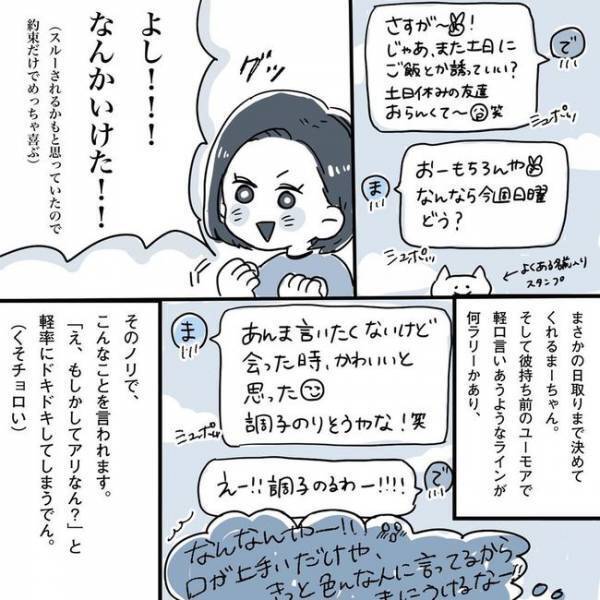 で
さすが〜✌!
じゃあ、また土日に
ご飯とか誘っていい?
土日休みの友達
おらんくて〜笑
シュポッ
ま
おーもちろんや✌
なんなら今週日曜
どう?
シュポッ
よくある名前入り
スタンプ
グッ
よし!!!
なんかいけた!!
(スルーされるかもと思っていたので
約束だけでめっちゃ喜ぶ)
まさかの日取りまで決めて
くれるまーちゃん。
そして彼持ち前のユーモアで
軽口言いあうようなラインが
何ラリーかあり、
ま
あんま言いたくないけど
会った時、かわいいと
思った
調子のりそうやな!笑
シュポッ
で
えー!!調子のるわー!!!!
なんなんやー!!
口が上手いだけや、
きっと色んな人に言ってるから
そのノリで、
こんなことを言われます。
「え、もしかしてアリなん?」と
軽率にドキドキしてしまうでん。
(くそチョロい)